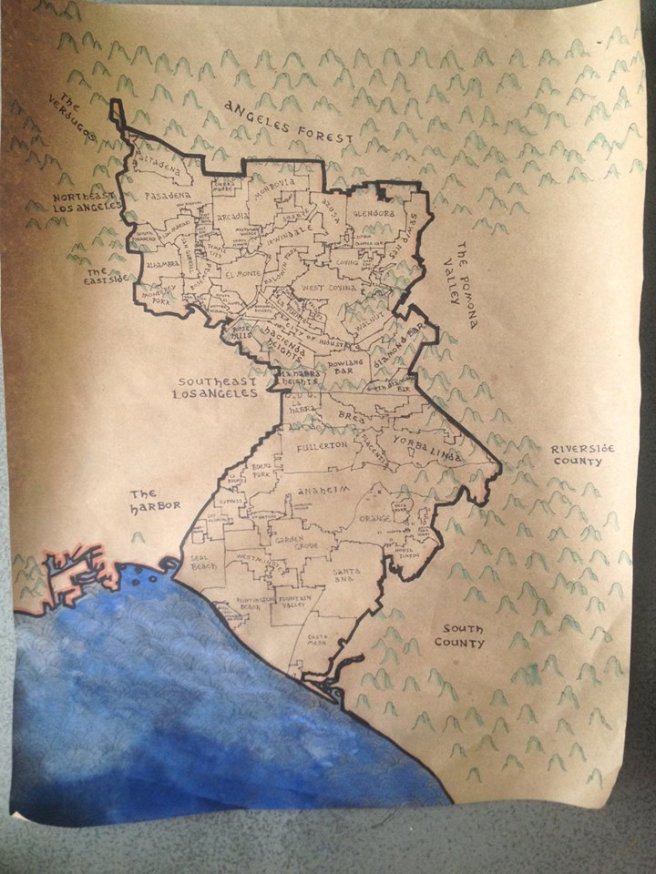 THE
VERDUGOS
ANGELES FOREST
ALTADENA
NORTHEAST
LOS ANGELES
PASADENA
SIERRA
MADRE
MONROVIA
ARCADIA
DUARTE
AZUSA
GLENDORA
IRWINDALE
SOUTH
PASADENA
SAN MARINO
TEMPLE
CITY
COVINA
THE
EASTSIDE
ALHAMBRA
SAN GABRIEL
EL MONTE
BALDWIN PARK
WEST COVINA
THE POMONA
VALLEY
MONTEREY
PARK
LA PUENTE
WALNUT
ROSE
HILLS
CITY OF INDUSTRY
HACIENDA
HEIGHTS
DIAMOND BAR
ROWLAND
BAR
SOUTHEAST
LOS ANGELES
LA HABRA
HEIGHTS
LA
HABRA
BREA
FULLERTON
PLACENTIA
YORBA LINDA
RIVERSIDE
COUNTY
BUENA
PARK
THE
HARBOR
ANAHEIM
CYPRESS
ORANGE
GARDEN
GROVE
SEAL
BEACH
WESTMINSTER
SANTA
ANA
HUNTINGTON
BEACH
FOUNTAIN
VALLEY
COSTA
MESA
SOUTH
COUNTY